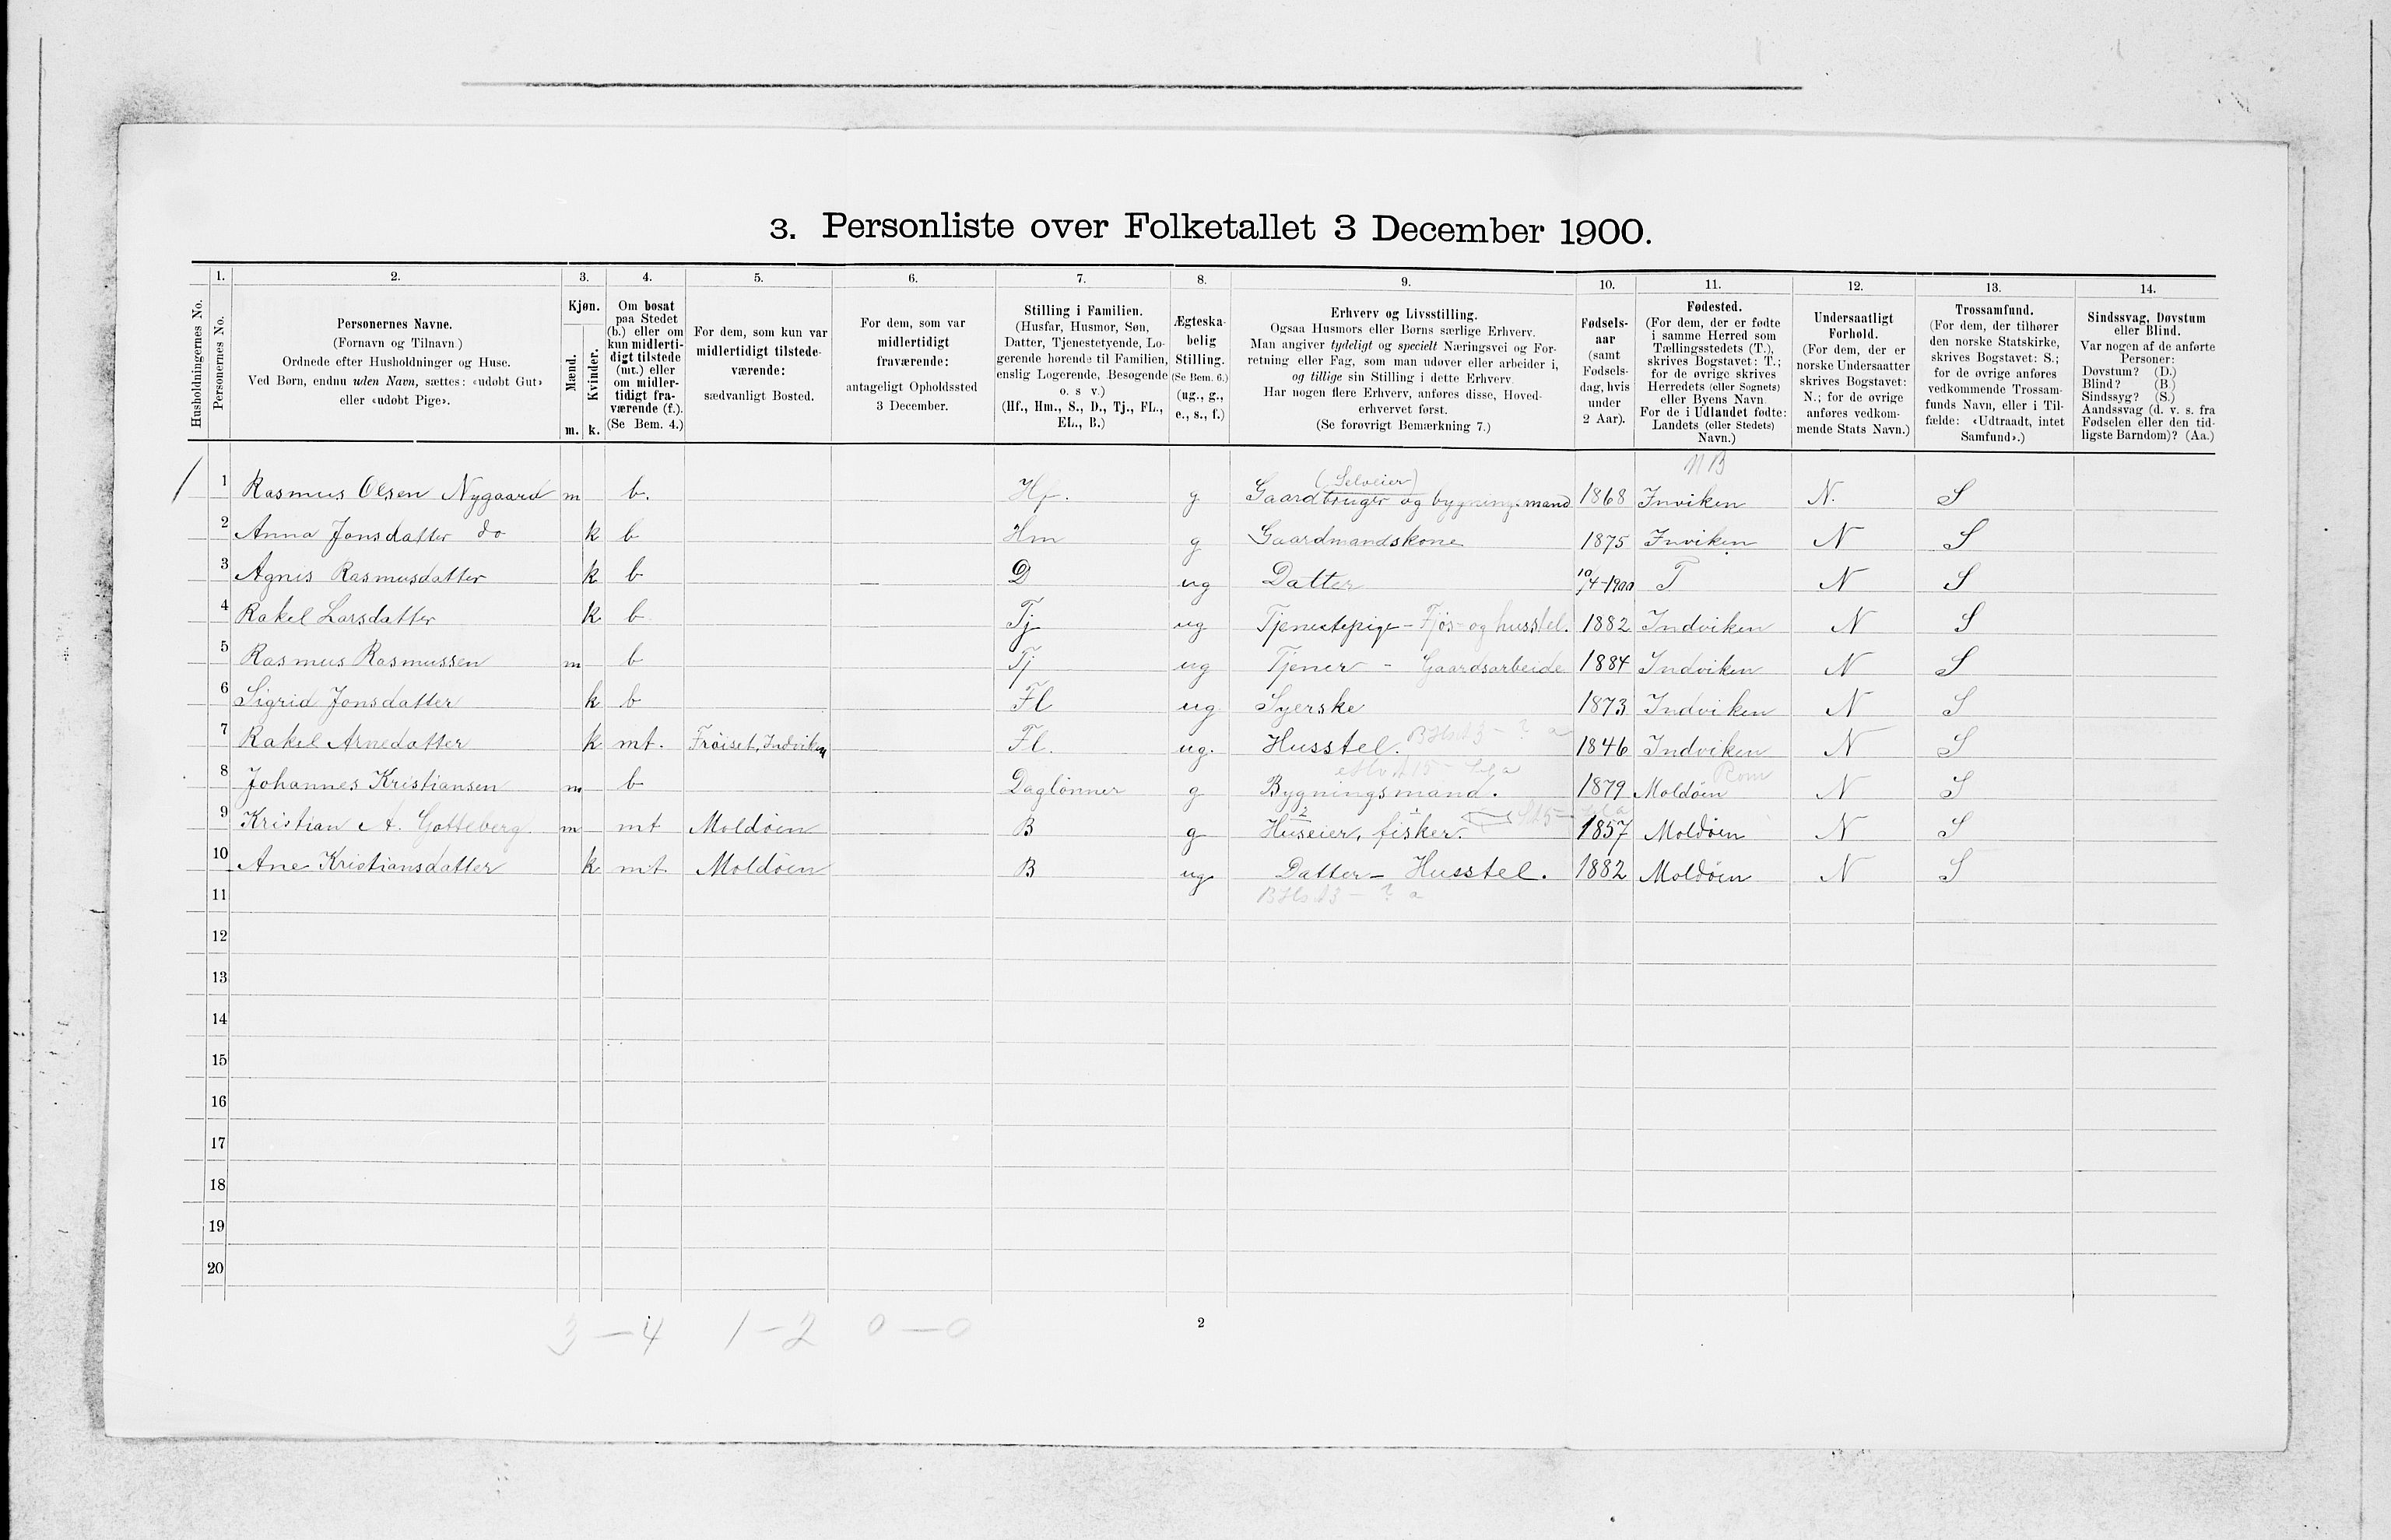 3. Personliste over Folketallet 3 December 1900.
1. 2. 3. 4. 5. 6. 7. 8. 9. 10. 11. 12. 13. 14.
Husholdningernes No.
Personernes No.
Personernes Navne.
(Fornavn og Tilnavn)
Ordnede efter Husholdninger og Huse.
Ved Børn, endnu uden Navn, sættes: «udøbt Gut»
eller «udøbt Pige».
Kjøn.
Mænd.
m.
Kvinder.
k.
Om bosat
paa Stedet
(b.) eller om
kun midlerti-
digt tilstede
(mt.) eller
om midler-
tidigt fra-
værende (f.).
(Se Bem. 4.)
For dem, som kun var
midlertidigt tilstede-
værende:
sædvanligt Bosted.
For dem, som var
midlertidigt
fraværende:
antageligt Opholdssted
3 December.
Stilling i Familien.
(Husfar, Husmor, Søn,
Datter, Tjenestetyende, Lo-
gerende hørende til Familien,
enslig Logerende, Besøgende
o. s v.)
(Hf., Hm., S., D., Tj., FL.,
EL., B.)
Ægteska-
belig
Stilling.
(Se Bem. 6.)
(ug., g.,
e., s., f.)
Erhverv og Livsstilling.
Ogsaa Husmors eller Børns særlige Erhverv.
Man angiver tydeligt og specielt Næringsvei og For-
retning eller Fag, som man udøver eller arbeider i,
og tillige sin Stilling i dette Erhverv.
Har nogen flere Erhverv, anføres disse, Hoved-
erhvervet først.
(Se forøvrigt Bemærkning 7.)
Fødsels-
aar
(samt
Fødsels-
dag, hvis
under
2 Aar).
Fødested.
(For dem, der er fødte
i samme Herred som
Tællingsstedets (T.),
skrives Bogstavet: T.;
for de øvrige skrives
Herredets (eller Sognets)
eller Byens Navn
For de i Udlandet fødte:
Landets (eller Stedets)
Navn.)
Undersaatligt
Forhold.
(For dem, der er
norske Undersaatter
skrives Bogstavet:
N.; for de øvrige
anføres vedkom-
mende Stats Navn.)
Trossamfund.
(For dem, der tilhører
den norske Statskirke,
skrives Bogstavet: S.;
for de øvrige anføres
vedkommende Trossam-
funds Navn, eller i Til-
fælde: «Udtraadt, intet
Samfund».)
Sindssvag, Døvstum
eller Blind.
Var nogen af de anførte
Personer:
Døvstum? (D.)
Blind? (B.)
Sindssyg? (S.)
Aandssvag (d. v. s. fra
Fødselen eller den tid-
ligste Barndom)? (Aa.)
NB
(Selveier)
1 1 Rasmus Olsen Nygaard m b. Hf. g Gaardbruger og bygningsmand 1868 Inviken N. S
2 Anna Jonsdatter do k b Hm g Gaardmandskone 1875 Inviken N S
3 Agnis Rasmusdatter k b D ug Datter 10/4-1900 T N S
4 Rakel Larsdatter k b Tj ug Tjenestepige - Fjøs- og husstel. 1882 Indviken N S
5 Rasmus Rasmussen m b Tj ug Tjener - Gaardsarbeide 1884 Indviken N S
6 Sigrid Jonsdatter k b Fl ug Syerske 1873 Indviken N S
7 Rakel Arnedatter k mt. Frøiset, Indviken Fl. ug. Husstel. 1846 Indviken N S
8 Johannes Kristiansen m b Daglønner g Bygningsmand. 1879 Moldøen N S
9 Kristian A. Gotteberg m mt Moldøen B g Huseier, fisker. 1857 Moldøen N S
10 Ane Kristiansdatter k mt. Moldøen B ug Datter - Husstel. 1882 Moldøen N S
11
12
13
14
15
16
17
18
19
20
3 - 4 1 - 2 0 - 0
2